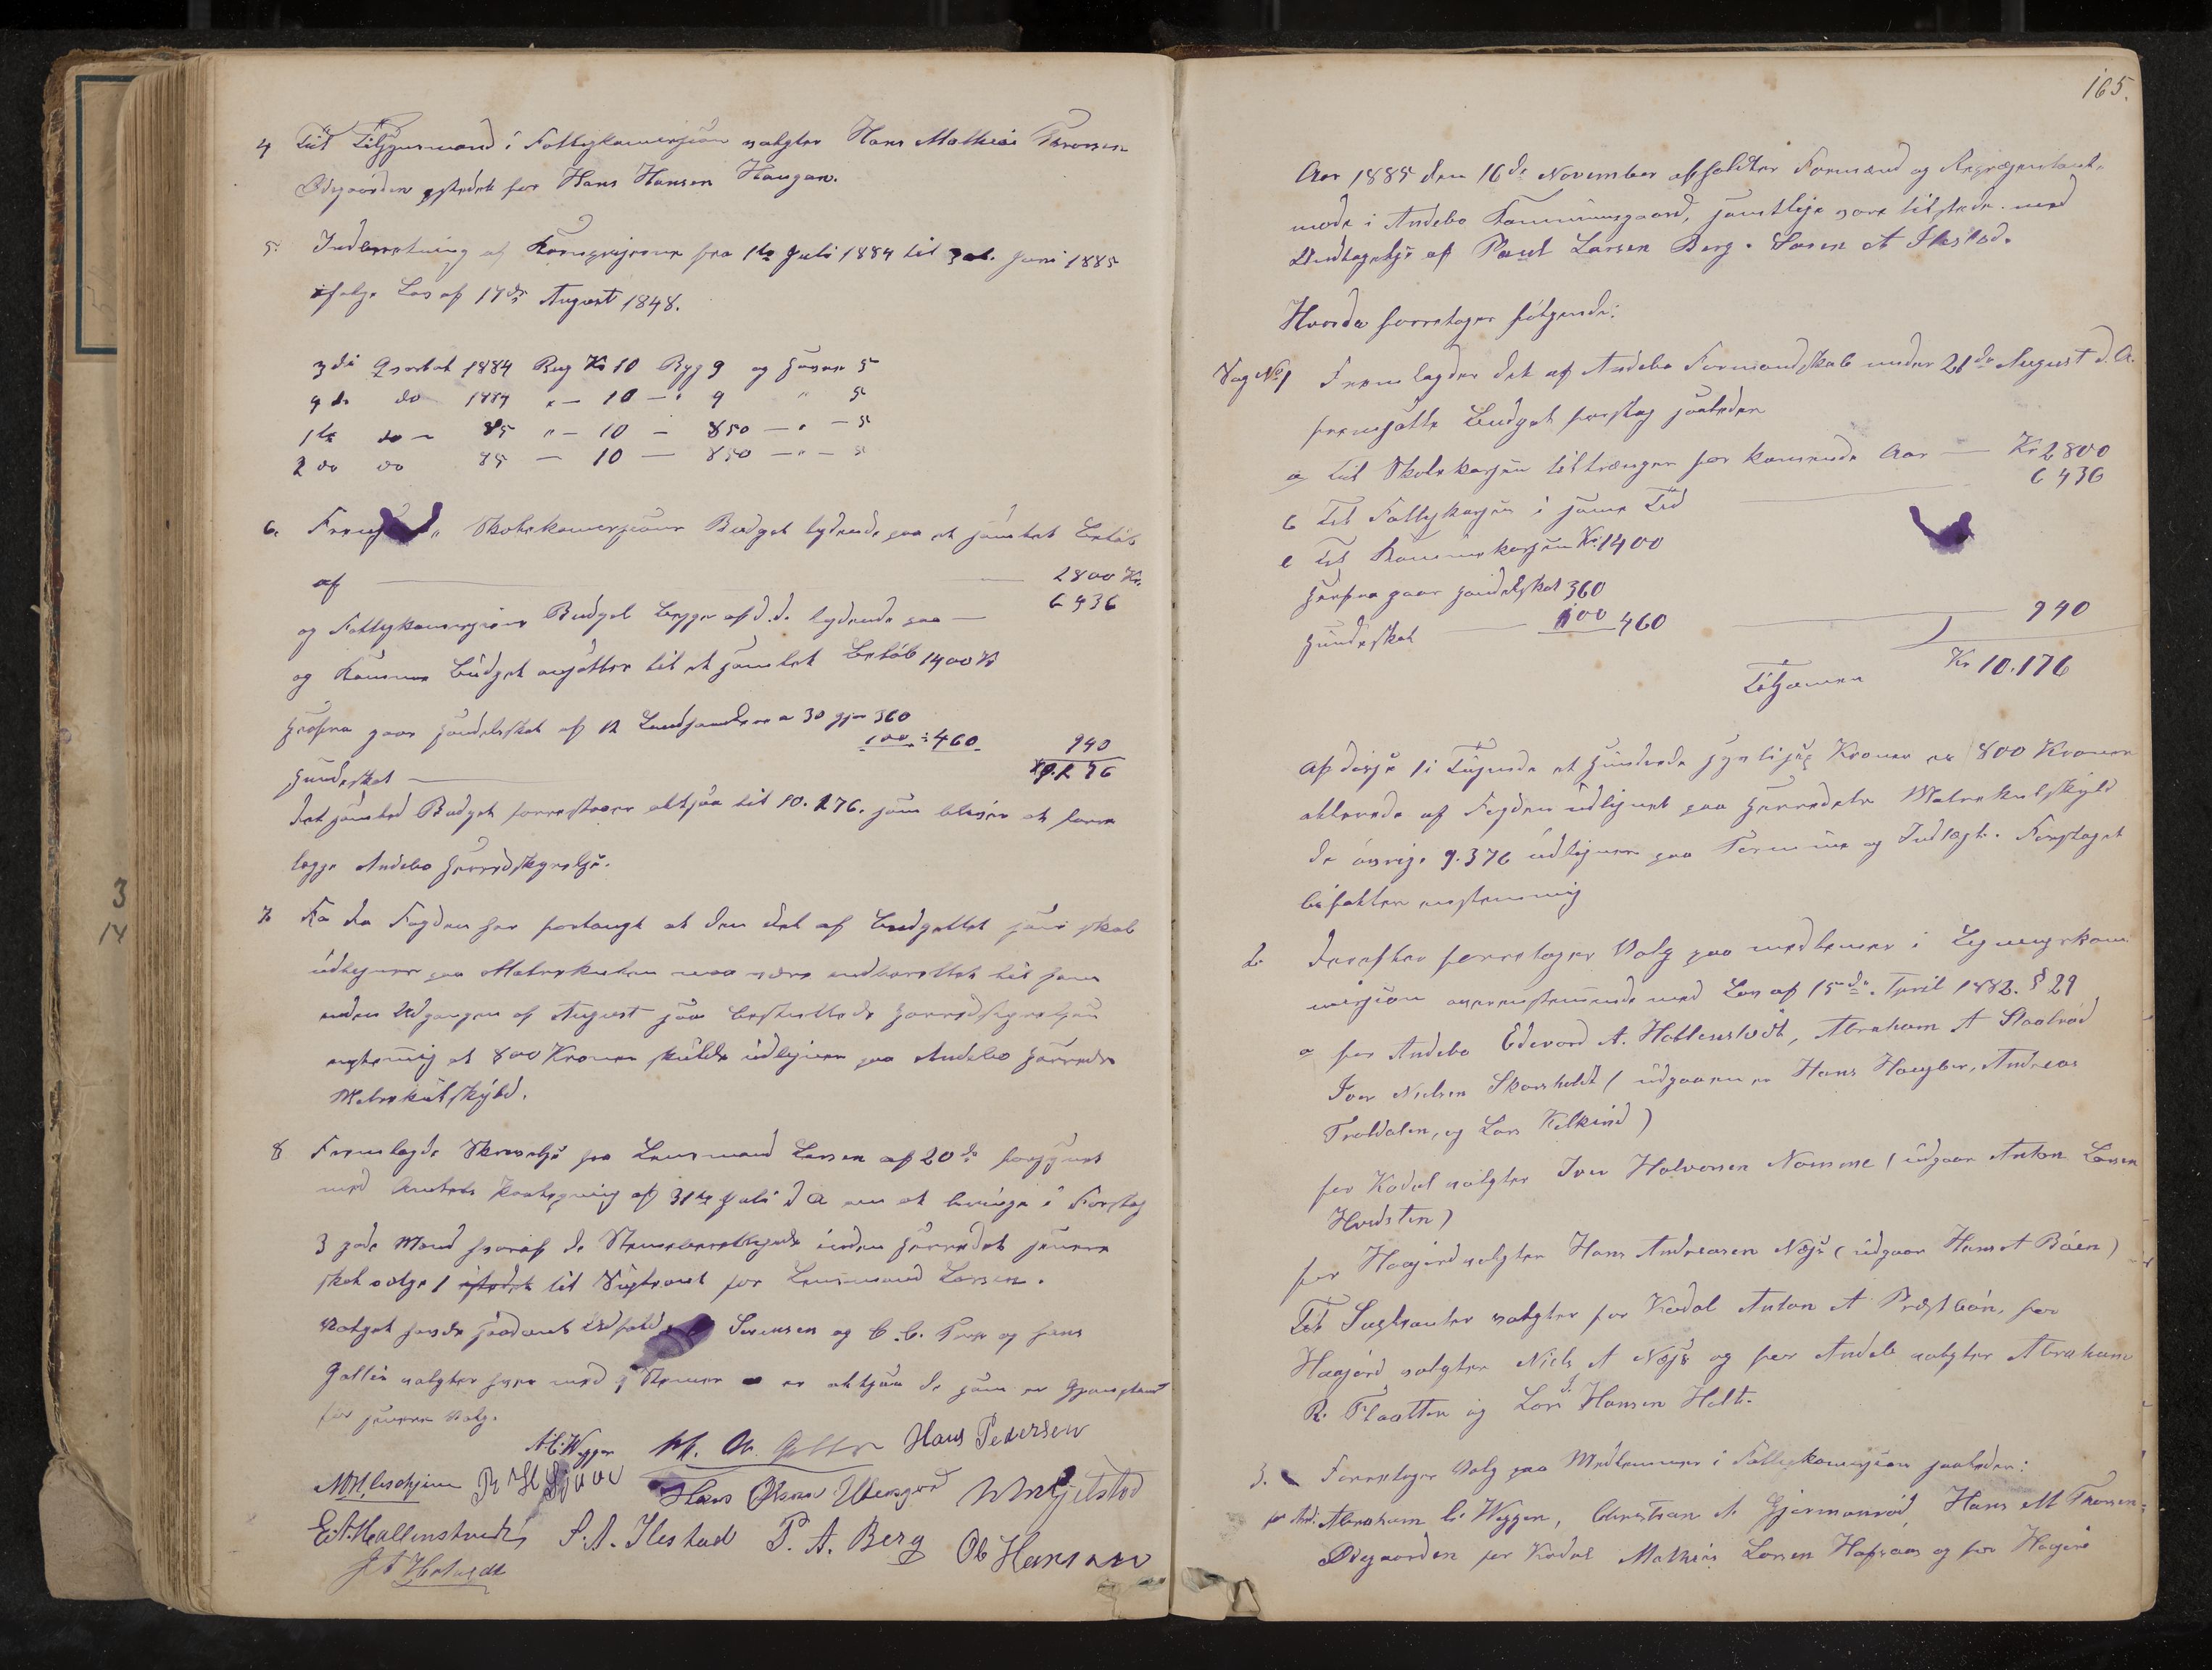 4 Til Tilsynsmand i Fattigkommissjon valgtes Hans Mathias Thronsen
Ødegaarden istedet for Hans Hansen Haugan.
5. Indberetning af Kornpriserne fra 1ste Juli 1884 til Juni 1885
ifølge Lov af 17de August 1848.
3die Qvartal 1884 Rug Kr 10 Byg 9 og Havre 5
4de do 1884 " — 10 — " 9 " 5
1ste do — 85 " — 10 — 850 — " — 5
2do do 85 — 10 — 850 — " — 5
6. Skolekommisjons Budget lydende paa et samlet Beløb
af 2800 Kr.
og Fattigkommisjons Budget lydende paa — 6436
og Kommune Budget ansattes til et samlet Beløb 1400 Kr
Herfra gaar Handelsskat af 12 Landhandlere a 30 gjør 360
Hundeskat 100 : 460 940
10.176
Det samled Budget forrestaaer altsaa til 10.176. som bliver at fore
lægge Andebo Herredstyrelse.
7. Da Fogden har forlangt at den del af Budgettet som skal
udlignes paa Matrikulen maa være indberettet til ham
inden Udgangen af August saa besluttede Herredstyrelsen
enstemig at 800 Kroner skulde udlignes paa Andebo Herreds
Matrikulskyld.
8 Fremlagdes Skrivelse fra Lensmand Larsen af 20de
med Amtets Paategning af 31te Juli d A om at bringe i Forslag
3 gode Mænd hvoraf de Stemmeberettigede inden Herredet senere
skal vælge 1 istedet til Supleant for Lensmand Larsen.
Valget havde saadant Udfald Sørensen og C. C. og Hans
Gallis valgtes hver med Stemmer er altsaa de som er Gjenstand
for senere Valg.
A. C. Wegger Hans Pedersen
Hans Olsen
E. A. Hallenstvedt S. A. Ilestad P. A. Berg Ob Hansen
165.
Aar 1885 den 16de November afholdtes Formænd og Repræsentant-
møde i Andebo Kommunegaard, samtlige vare tilstede med
Undtagelse af Paul Larsen Berg. Søren A Ilestad.
Hvorda forretoges følgende:
Sag No 1 Fremlagdes det af Andebo Formandskab under 21de August d. A.
fremsatte Budget forslag saaleden
a Til Skolekassen tiltrænges for kommende Aar — Kr 2800
b Til Fattigkassen i samme Tid 6436
c Til Kommunekassen Kr. 1400
Herfra gaar Handelsskat 360
Hundeskat 100 460 940
Tilsammen Kr 10.176
Af disse Ti Tusende et Hundrede Syvtisex Kroner er 800 Kroner
allerede af Fogden udlignet paa Herredets Matrikulskyld
de øvrige 9.376 udlignes paa Formue og Indtægt. Forslaget
bifaltes enstemmig
2. Derefter forretoges Valg paa medlemmer i Ligningskom
misjon overenstemmende med Lov af 15de April 1882. § 29
a for Andebo Edevard A. Hallenstvedt, Abraham A Staalerød
Iver Nielsen Skarsholdt (udgaaende er Hans Haugber, Andreas
Troldalen, og Lars Kilkind)
for Kodal valgtes Iver Halvorsen Nomme (udgaar Anton Larsen
Hvidsten)
for Høgjord valgtes Hans Andreasen Næss (udgaar Hans A Bøen)
Til Suplianter valgtes for Kodal Anton A Prestbøn, for
Høgjord valgtes Niels A Næss og for Andebo valgtes Abraham
R. Flaatten og Lars J. Hansen Holt.
3. Forretoges Valg paa Medlemmer i Fattigkommisjon saaleden:
for And: Abraham C. Weggen, Christian A. Gjermundrød, Hans M Thronsen
Ødegaarden for Kodal Mathias Larsen Hafsaas og for Høgjord